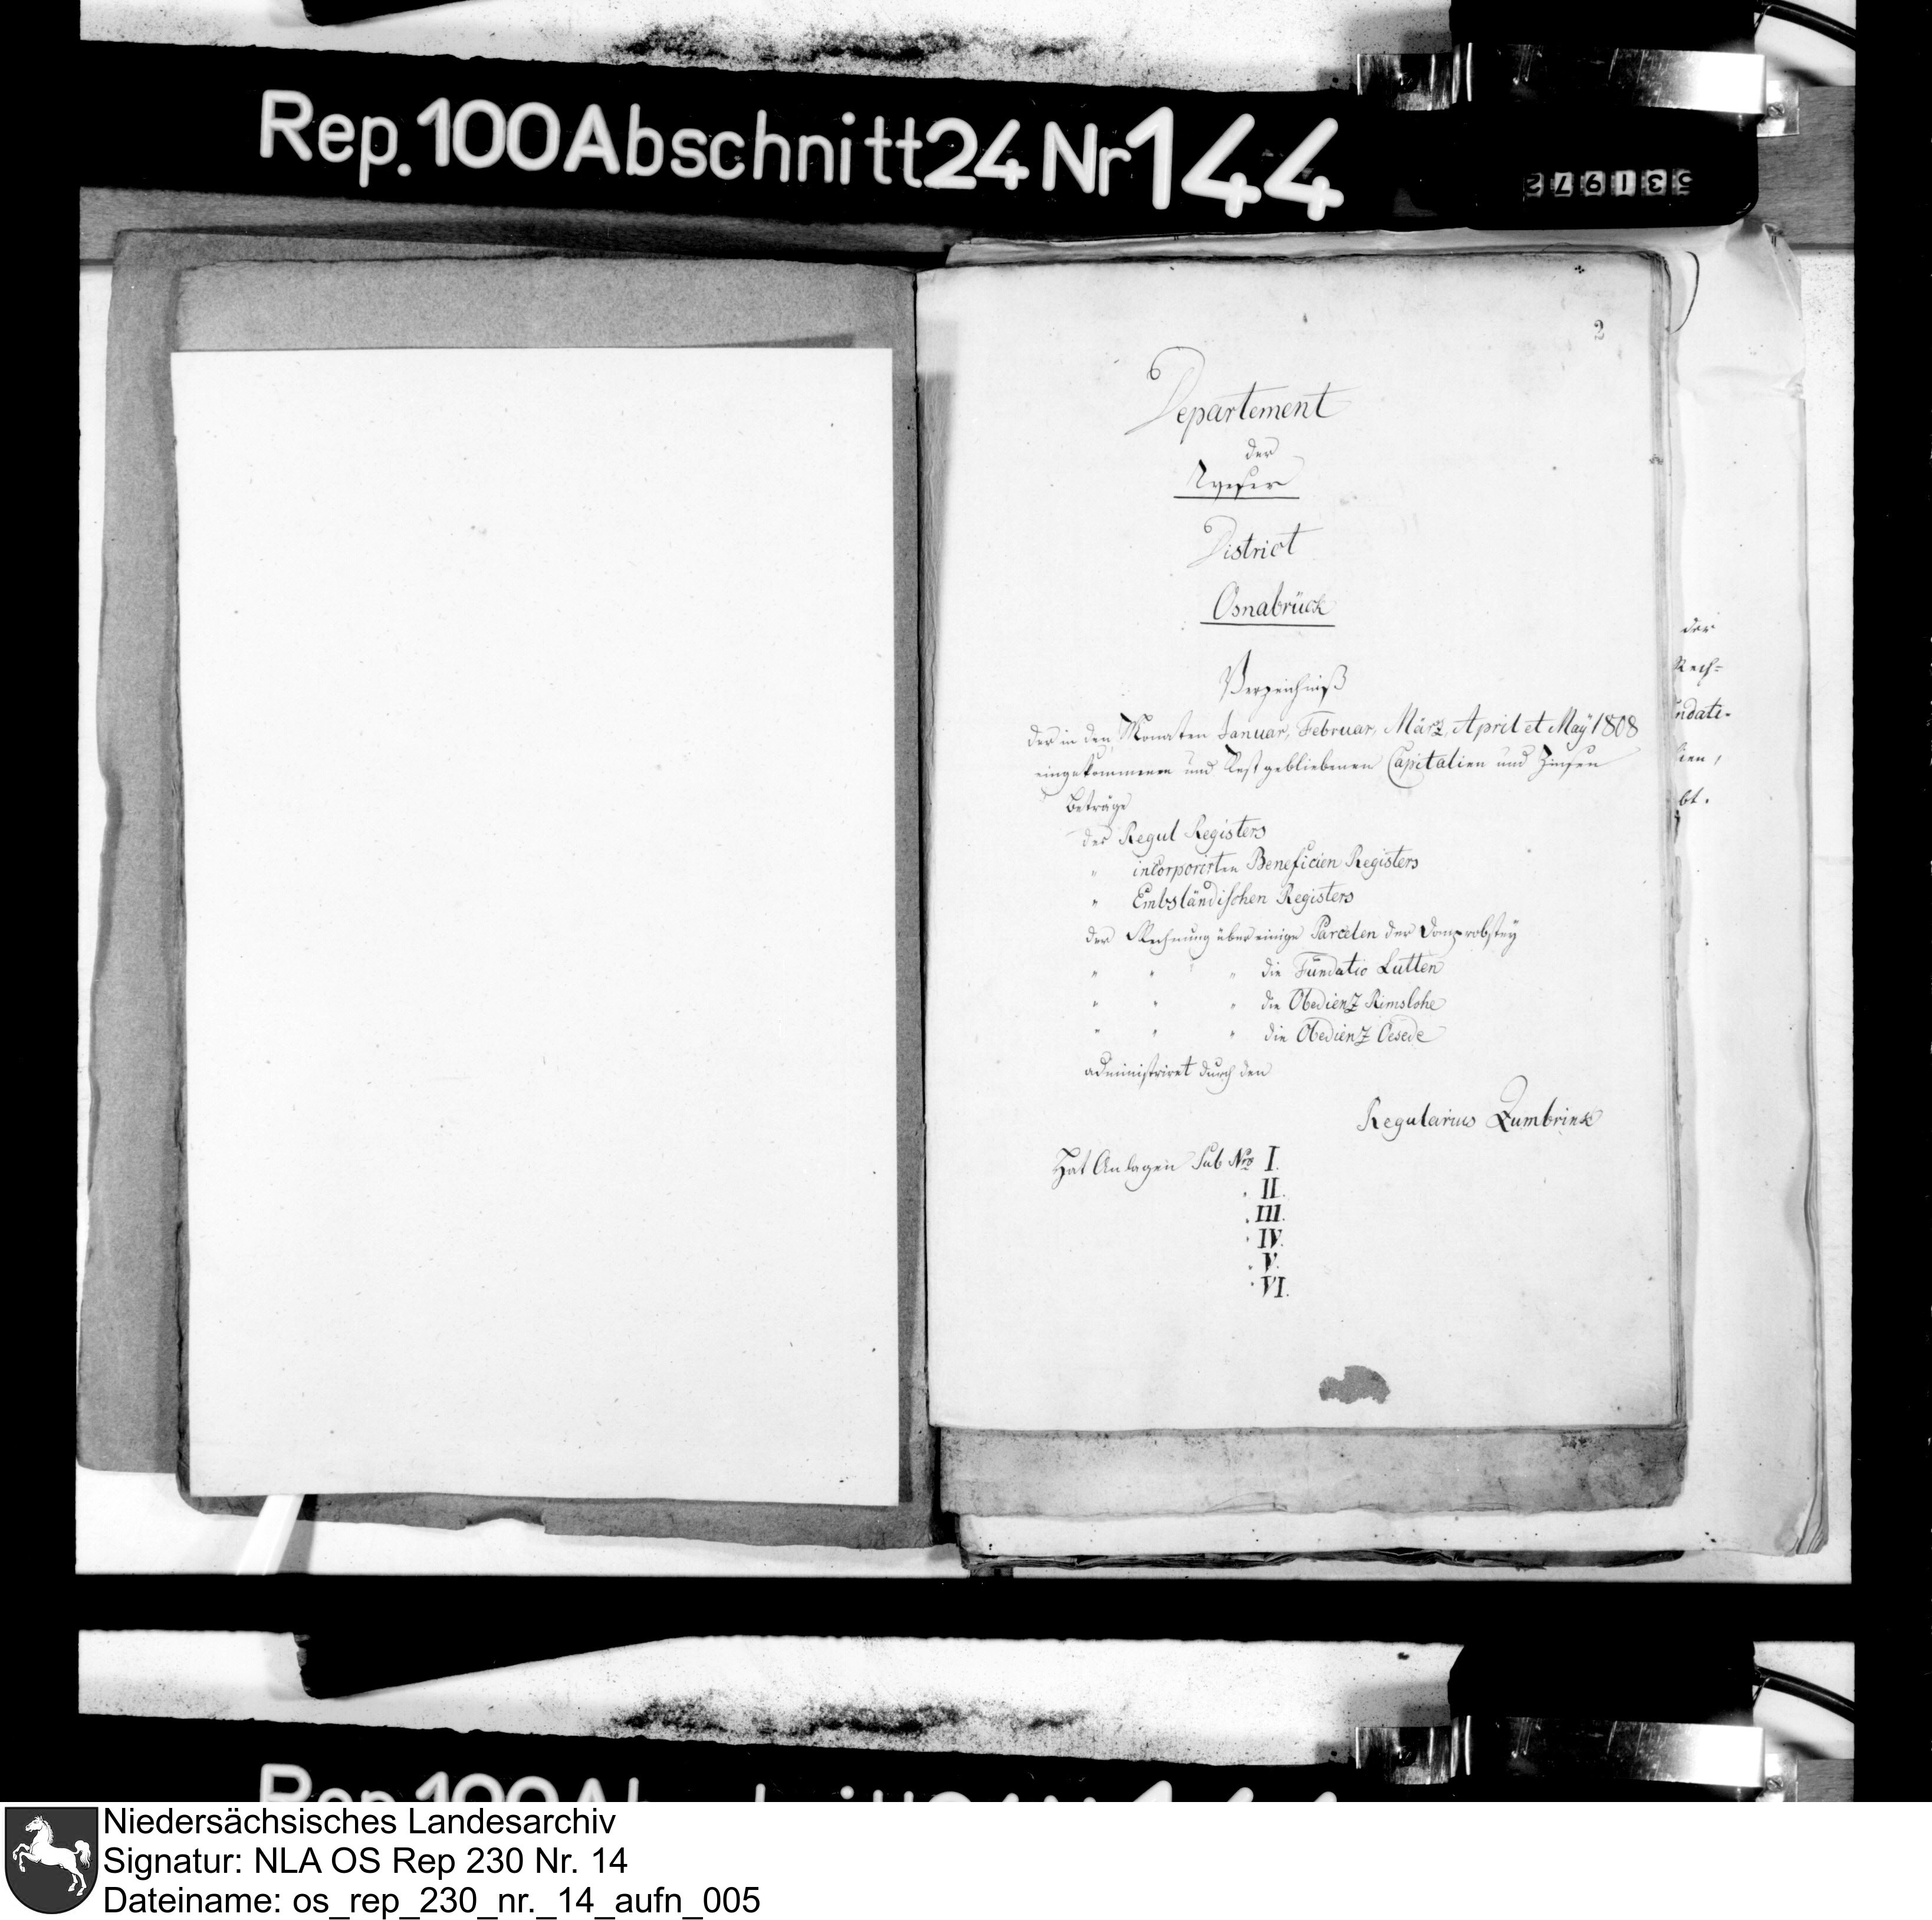 Rep. 100 Abschnitt 24 Nr 144
531972
2
Departement
der
Weser
District
Osnabrück
Verzeichniß
der in den Monaten Januar, Februar, März, April et Maÿ 1808
eingekommenen und Rest gebliebenen Capitalien und Zinsen
Beträge
des Regul Registers
" incorporirten Beneficien Registers
" Embsländischen Registers
der Rechnung über einige Parcelen der Domprobstey
" " " die Fundatio Lutten
" " " die Obedienz Rimslohe
" " " die Obedienz Oesede
administriret durch den
Regularius Zumbrink
Hat Anlagen sub Nro I.
" II.
" III.
" IV.
" V.
" VI.
der
Rech=
ndati-
ien,
bt.
Niedersächsisches Landesarchiv
Signatur: NLA OS Rep 230 Nr. 14
Dateiname: os_rep_230_nr._14_aufn_005